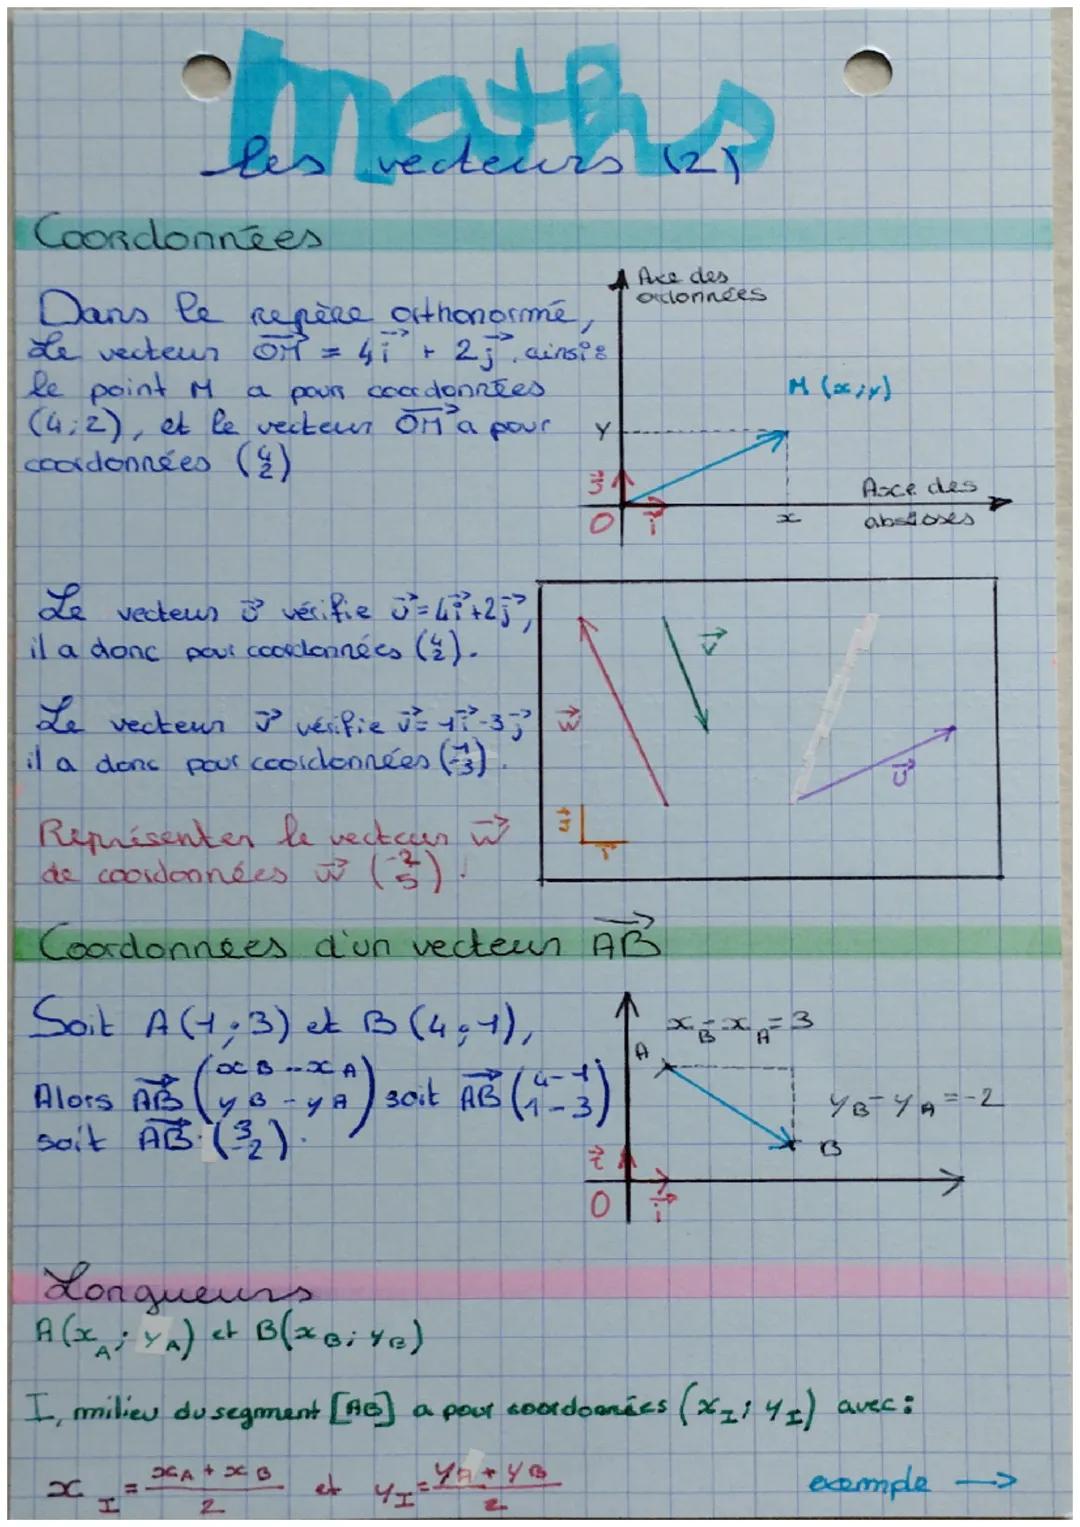 maths
les vecteurs (2)
Coordonnées
Dans le repère orthonormé,
Le vecteur OM⃗ = 4i⃗ + 2j⃗, ainsi :
le point M a pour coordonnées
(4;2), et le vecteur OM⃗ a pour
coordonnées (4 2)
Axe des
ordonnées
M (x;y)
y
j⃗
O
i⃗
x
Axe des
abscisses
Le vecteur u⃗ vérifie u⃗ = 4i⃗+2j⃗,
il a donc pour coordonnées (4 2).
Le vecteur v⃗ vérifie v⃗ = 1i⃗-3j⃗
il a donc pour coordonnées (1 -3).
Représenter le vecteur w⃗
de coordonnées w⃗ (-2 5) !
w⃗
v⃗
u⃗
j⃗
i⃗
Coordonnées d'un vecteur AB⃗
Soit A(1;3) et B(4;1),
Alors AB⃗ (xB - xA yB - yA) soit AB⃗ (4-1 1-3)
soit AB⃗ (3 -2).
xB - xA = 3
A
yB - yA = -2
B
O
i⃗
Longueurs
A(xA; yA) et B(xB; yB)
I, milieu du segment [AB] a pour coordonnées (xI; yI) avec :
xI = xA + xB / 2 et yI = yA + yB / 2
exemple →